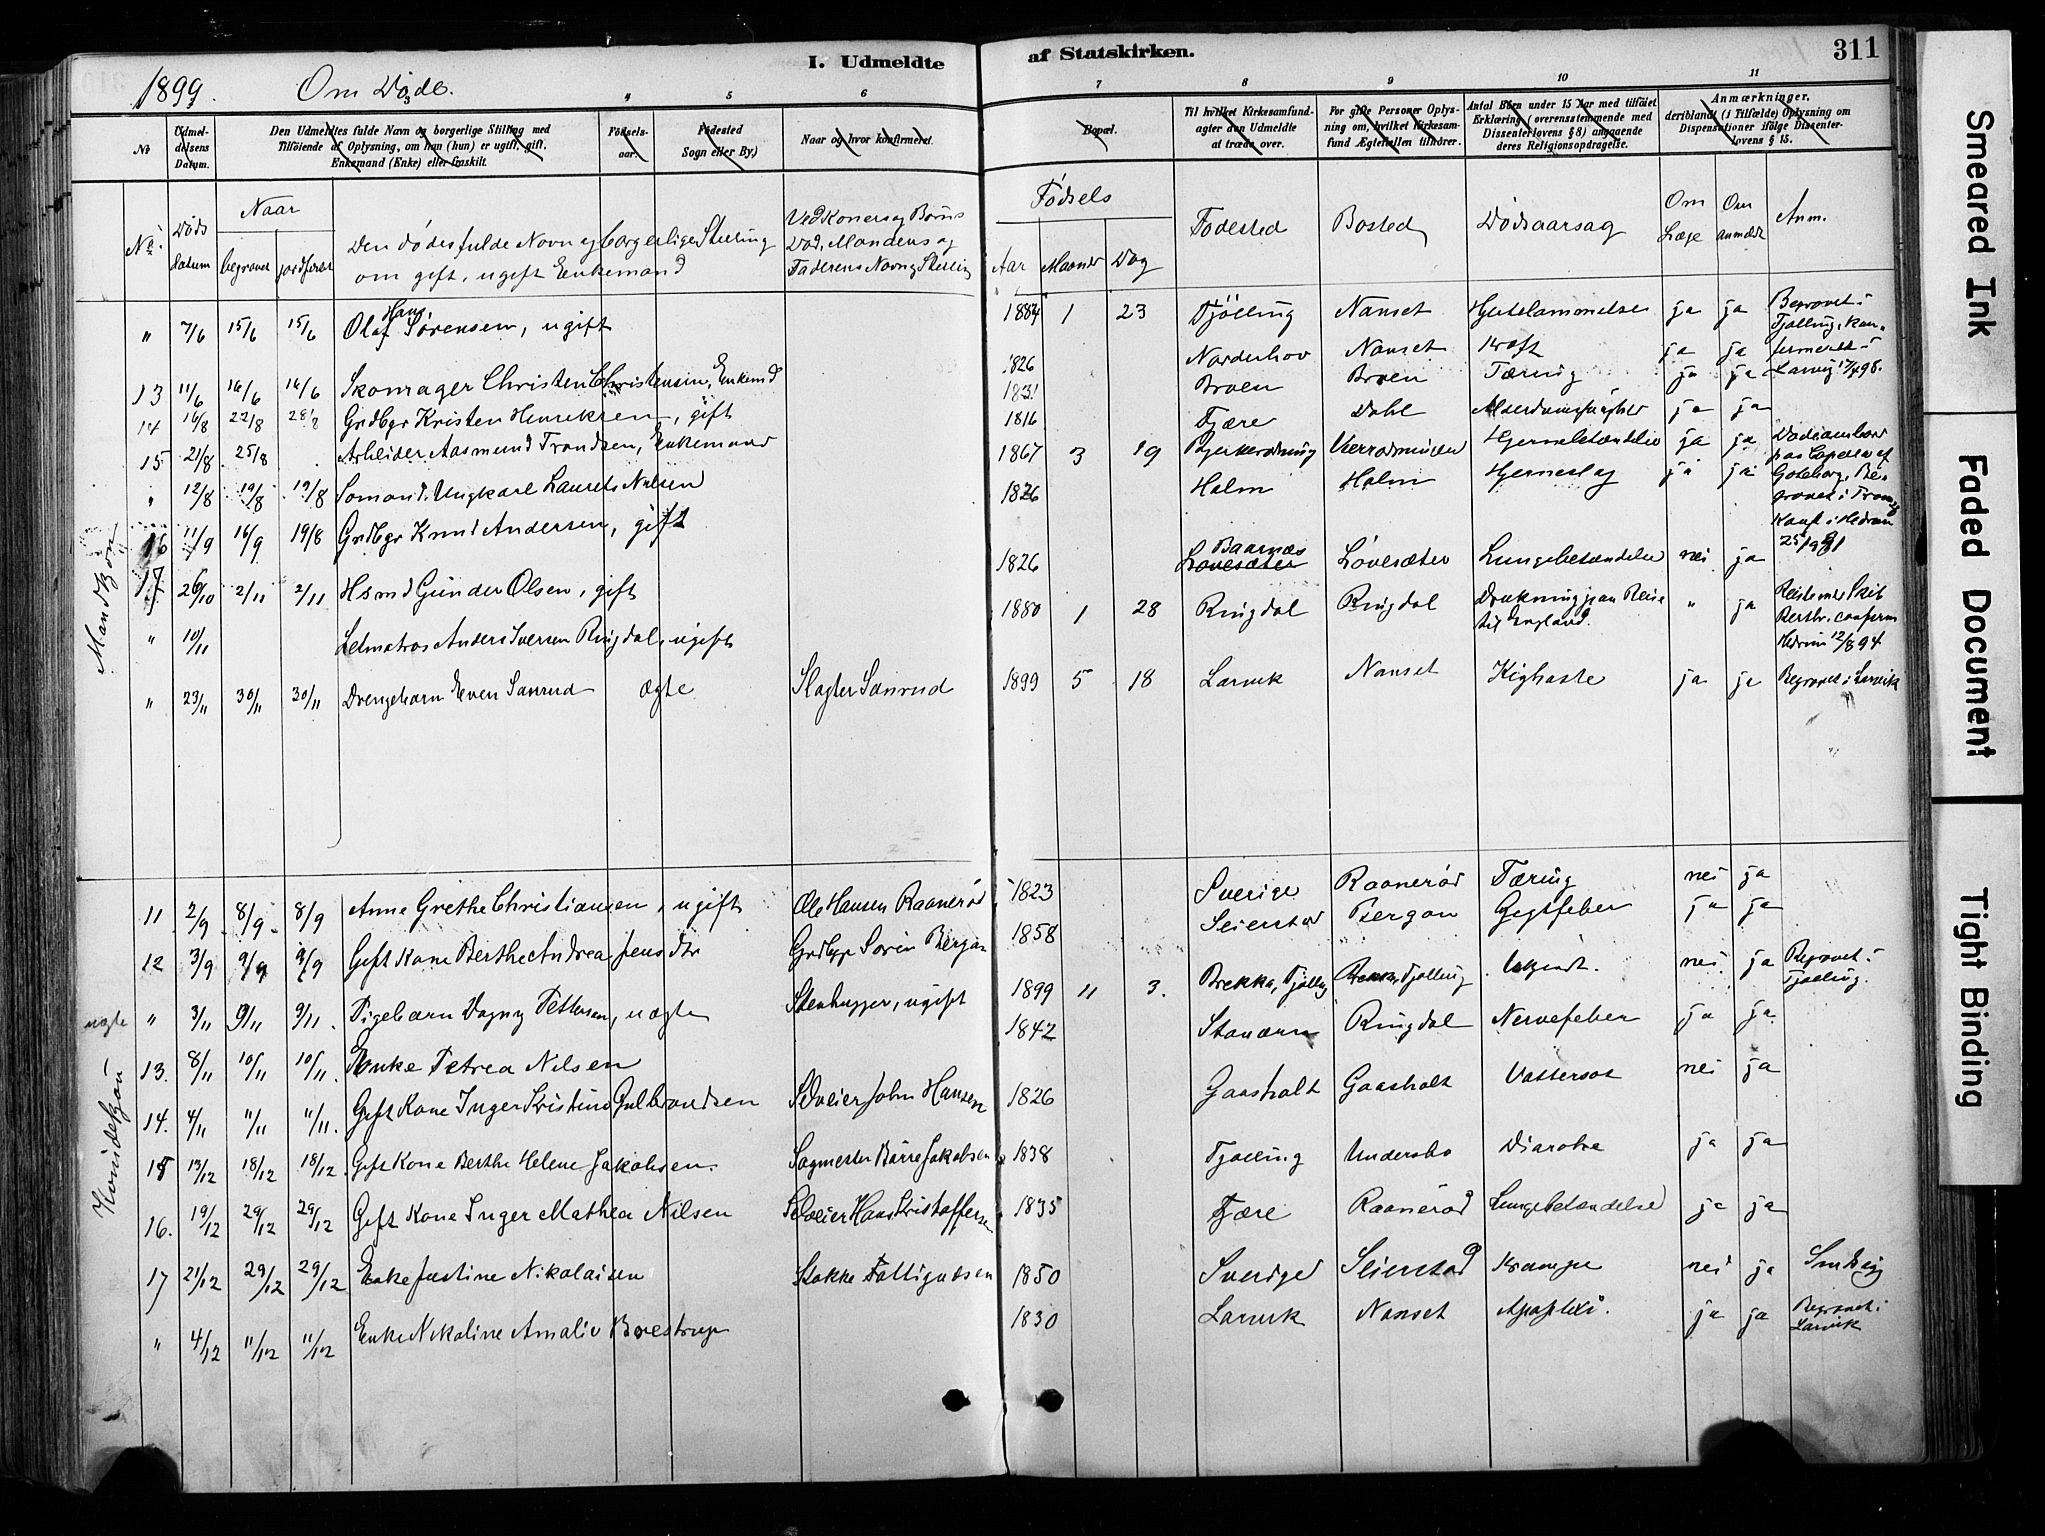 1899. Om Døde.
I. Udmeldte af Statskirken. 311
4 5 6 7 8 9 10 11
No
Udmel-
delsens
Datum.
Den Udmeldtes fulde Navn og borgerlige Stilling med
Tilføiende af Oplysning, om han (hun) er ugift, gift,
Enkemand (Enke) eller fraskilt.
Fødsels-
aar.
Fødested
Sogn eller By.)
Naar og hvor konfirmeret.
Bopæl.
Til hvilket Kirkesamfund-
agter den Udmeldte
at træde over.
For gifte Personer Oplys-
ning om, hvilket Kirkesam-
fund Ægtefællen tilhører.
Antal Børn under 15 Aar med tilføiet
Erklæring (overensstemmende med
Dissenterlovens § 8) angaaende
deres Religionsopdragelse.
Anmærkninger,
deriblandt (i Tilfælde) Oplysning om
Dispensationer ifølge Dissenter-
lovens § 15.
No
Døds
datum
Naar
begravet jordfæstet
Den dødes fulde Navn og borgerlige Stilling
om gift, ugift Enkemand
Ved Koners og Børns
Død, Mandens og
Faderens Navn og Stilling
Fødsels
Aar Maaned Dag
Fødested
Bosted
Dødsaarsag
Om
Læge
Om
anmeldt
Anm.
Mandkjøn
" 7/6 15/6 15/6 Olaf Hans Sørensen, ugift 1884 1 23 Tjölling Nanset ja ja Begravet i
Tjølling, kon-
firmeret i
Larvig 17/4 98.
13 11/6 16/6 16/6 Skomager Christen Christensen, Enkemd 1826 Norderhov Nanset Kræft ja ja
14 16/8 22/8 28/8 Grdbgr Kristen Henriksen, gift 1831 Broen Broen Tæring ja ja
15 21/8 25/8 Arbeider Aasmund Trondsen, Enkemand 1816 Fjære Dahl ja ja
" 12/8 19/8 19/8 Sømand, Ungkarl Laurits Nilsen 1867 3 19 ja ja
16 11/9 16/9 19/8 Grdbgr Knud Andersen, gift 1826 Holm Holm Hjerneslag ja ja
17 26/10 2/11 2/11 Hsmd Gunder Olsen, gift 1826 Løvesæter Løvesæter Lungebetændelse nei ja
" 10/11 Letmatros Anders Iversen Ringdal, ugift 1880 1 28 Ringdal Ringdal Drukning paa Reise
til England. " ja
Hedrum 12/8 94
" 23/11 30/11 30/11 Drengebarn Even Sanrud ægte Slagter Sanrud 1899 5 18 Larvik Nanset Kighoste ja ja Begravet i Larvik
Kvindekjøn
11 2/9 8/9 8/9 Anne Grethe Christiansen, ugift Ole Hansen Raanerød 1823 Sverige Raanerød Tæring nei ja
12 3/9 9/9 9/9 Gift Kone Berthe Andrea Jensdtr Grdbgr Søren Bergan 1858 Seierstad Bergan Gigtfeber ja ja
uægte " 3/11 9/11 9/11. Pigebarn Dagny Pettersen, uægte Stenhugger, ugift 1899 11 3. Brekke, Tjølling Brekke, Tjølling Ukjendt. nei ja Begravet i
Tjølling.
13. 8/11 10/11 10/11. Enke Petrea Nilsen 1842 Staværn Ringdal Nervefeber ja ja
14. 4/11 11/11 11/11. Gift Kone Inger Kristine Gulbrandsen Selveier John Hansen 1826 Gaasholt Gaasholt Vattersot nei ja
15 13/12 18/12 18/12. Gift Kone Berthe Helene Jakobsen. Sagmester Børre Jakobsen 1838 Tjølling Undersbo Diaroke ja ja
16. 19/12 29/12 29/12 Gift Kone Inger Mathea Nilsen Selveier Hans Kristoffersen 1835 Fjære Raanerød Lungebetændelse ja ja
17 21/12 29/12 29/12 Enke Justine Nikolaisen Stokke Fattigvæsen 1850 Sverige Seierstad Krampe nei ja
" 4/12 11/12 11/12 Enke Nikoline Amalie Borestrup 1830 Larvik Nanset Apoplexi. ja ja Begravet i
Larvik
Smeared Ink
Faded Document
Tight Binding